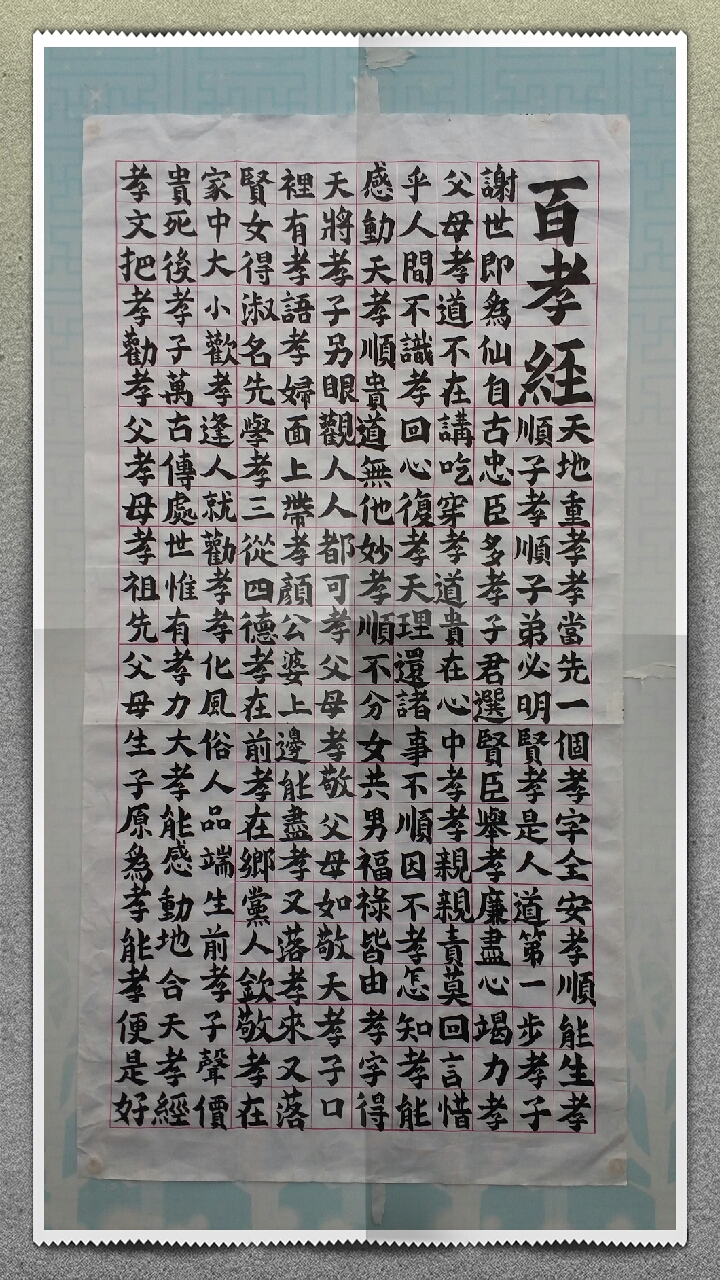 百孝經
天地重孝孝當先一個孝字全安孝順能生孝
順子孝順子弟必明賢孝是人道第一步孝子
謝世即為仙自古忠臣多孝子君選賢臣舉孝廉盡心竭力孝
父母孝道不在講吃穿孝道貴在心中孝孝親親責莫回言惜
乎人間不識孝回心復孝天理還諸事不順因不孝怎知孝能
感動天孝順貴道無他妙孝順不分女共男福祿皆由孝字得
天將孝子另眼觀人人都可孝父母孝敬父母如敬天孝子口
裡有孝語孝婦面上帶孝顏公婆上邊能盡孝又落孝來又落
賢女得淑名先學孝三從四德孝在前孝在鄉黨人欽敬孝在
家中大小歡孝逢人就勸孝孝化風俗人品端生前孝子聲價
貴死後孝子萬古傳處世惟有孝力大孝能感動地合天孝經
孝文把孝勸孝父孝母孝祖先父母生子原為孝能孝便是好